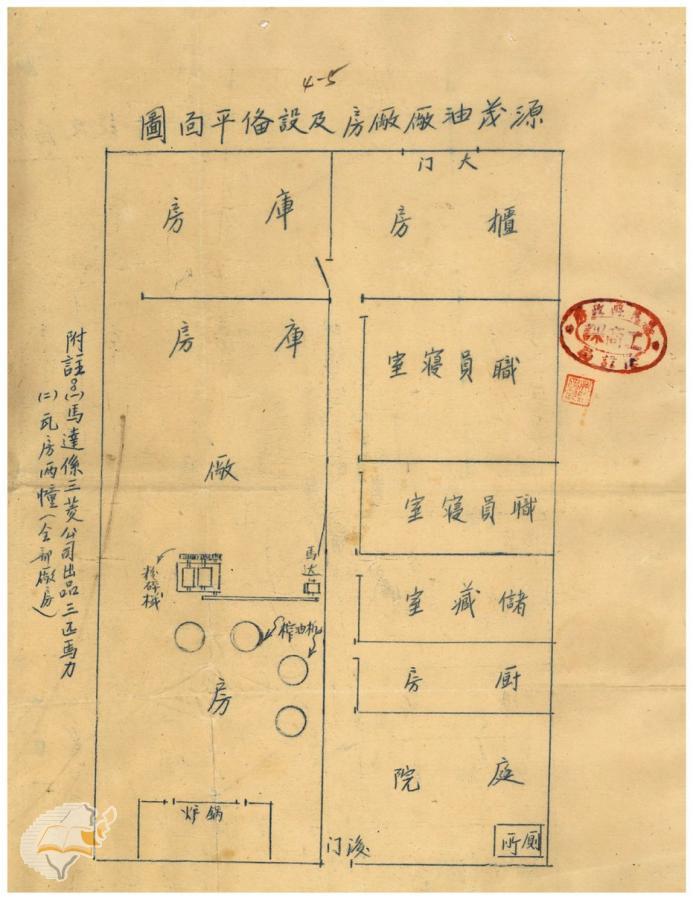 4-5
源茂油廠廠房及設备平面圖
大门
櫃房
庫房
職員寝室
庫房
職員寝室
廠
馬达
粉碎機
儲藏室
榨油机
房
厨房
庭院
鍋炉
厠所
後门
工商課
附註：(一)馬達係三菱公司出品三匹馬力
(二)瓦房兩幢(全部廠房)